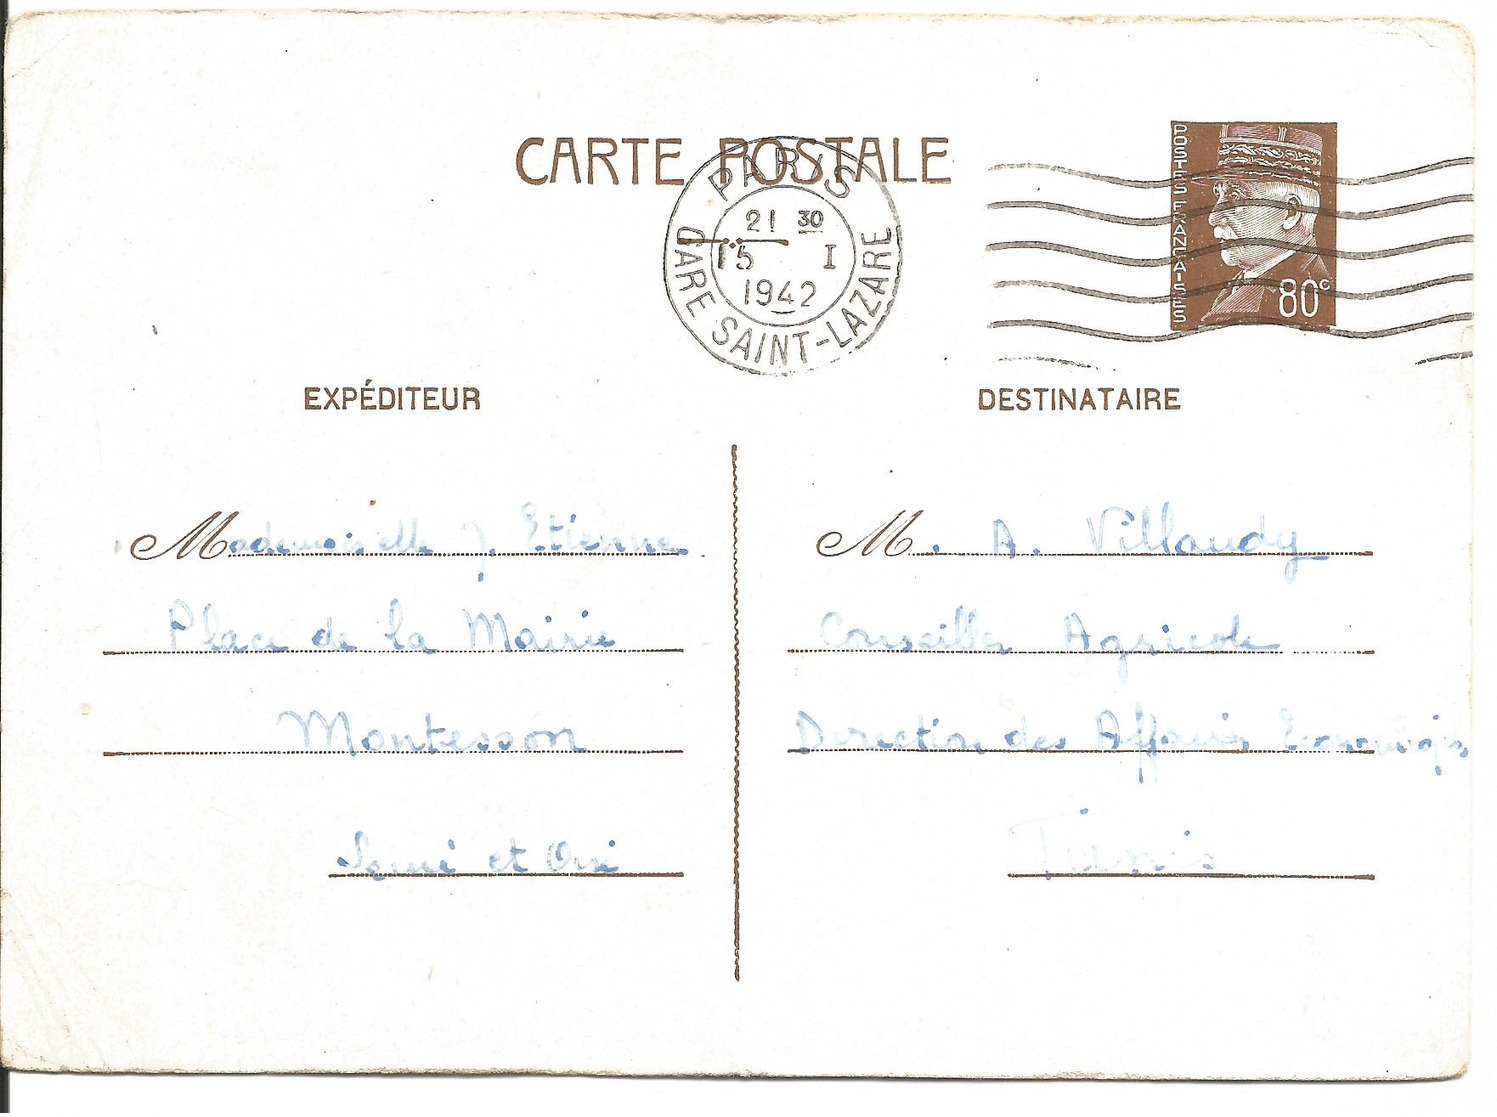 CARTE POSTALE
PARIS
21 30
15 I
1942
GARE SAINT-LAZARE
POSTES FRANÇAISES
80c
EXPÉDITEUR
DESTINATAIRE
Mademoiselle J. Etienne
Place de la Mairie
Montesson
Seine et Oise
M. A. Villaudy
Conseiller Agricole
Direction des Affaires Economiqs
Tunis